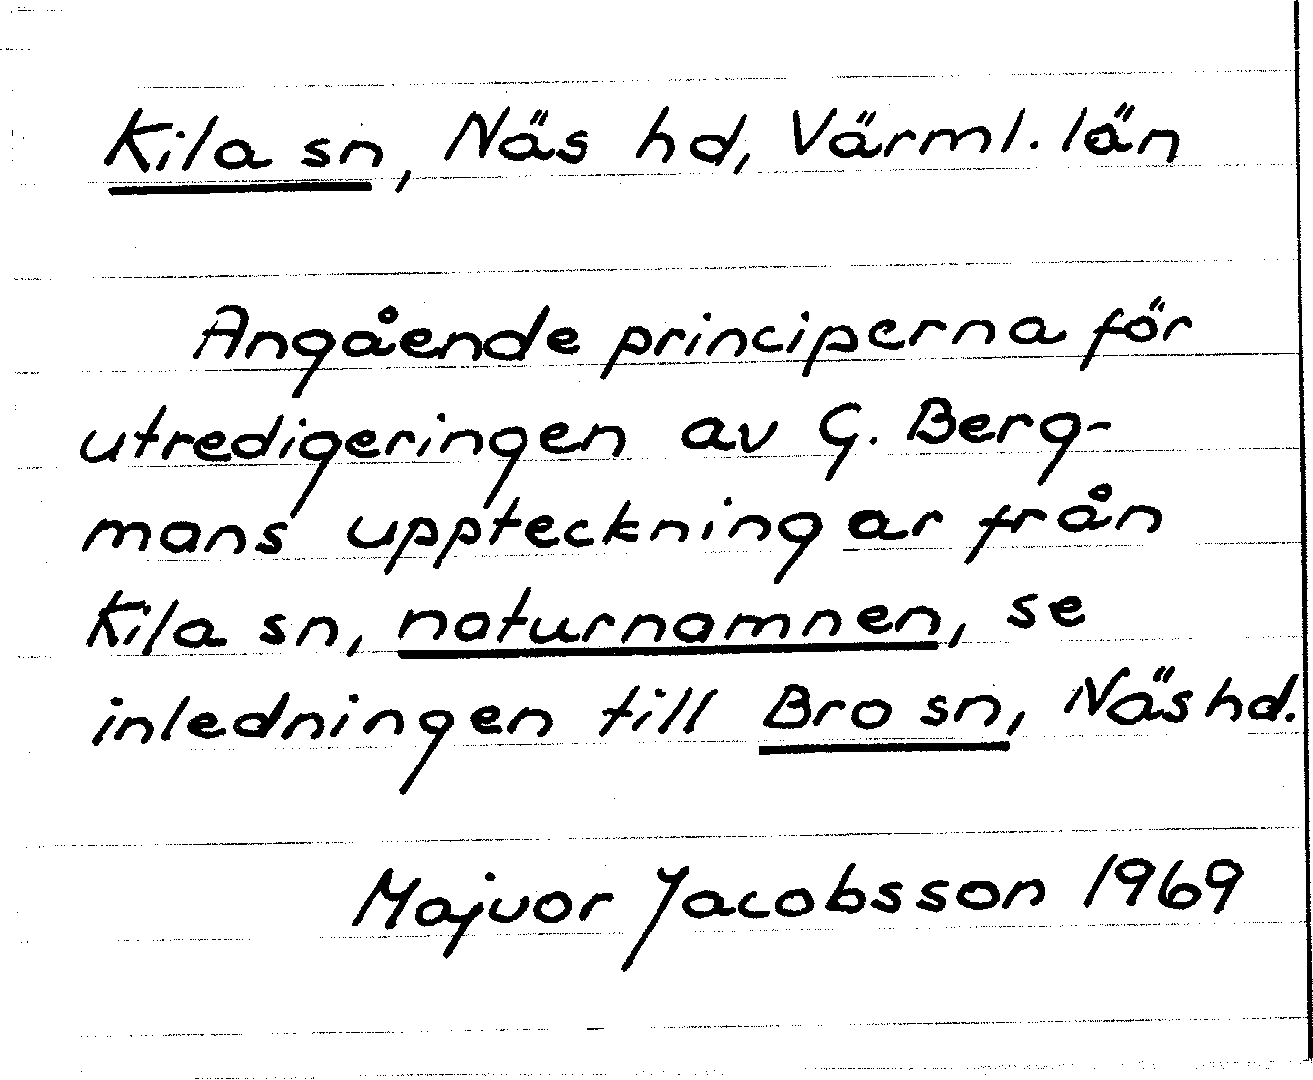 Kila sn, Näs hd, Värml. län
Angående principerna för
utredigeringen av G. Berg-
mans uppteckningar från
Kila sn, naturnamnen, se
inledningen till Bro sn, Näs hd.
Majvor Jacobsson 1969